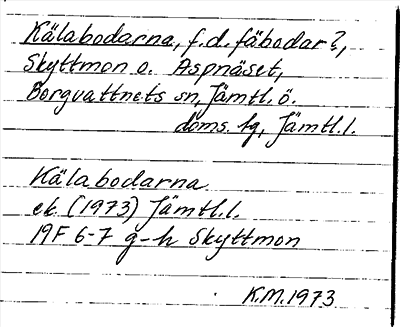 Kälabodarna, f.d. fäbodar?,
Skyttmon o. Aspnäset,
Borgvattnets sn, Jämtl. ö.
doms. hg, Jämtl. l.
Kälabodarna
ek. (1973) Jämtl. l.
19F 6-7 g-h Skyttmon
K.M. 1973